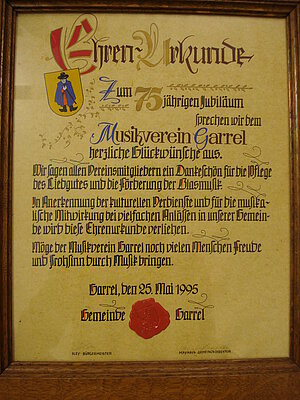 Ehren-Urkunde
Zum 75 jährigen Jubiläum
sprechen wir dem
Musikverein Garrel
herzliche Glückwünsche aus.
Wir sagen allen Vereinsmitgliedern ein Dankeschön für die Pflege
des Liedgutes und die Förderung der Blasmusik.
In Anerkennung der kulturellen Verdienste und für die musika-
lische Mitwirkung bei vielfachen Anlässen in unserer Gemein-
de wird diese Ehrenurkunde verliehen.
Möge der Musikverein Garrel noch vielen Menschen Freude
und Frohsinn durch Musik bringen.
Garrel, den 25. Mai 1995
Gemeinde Garrel
BÜRGERMEISTER GEMEINDEDIREKTOR